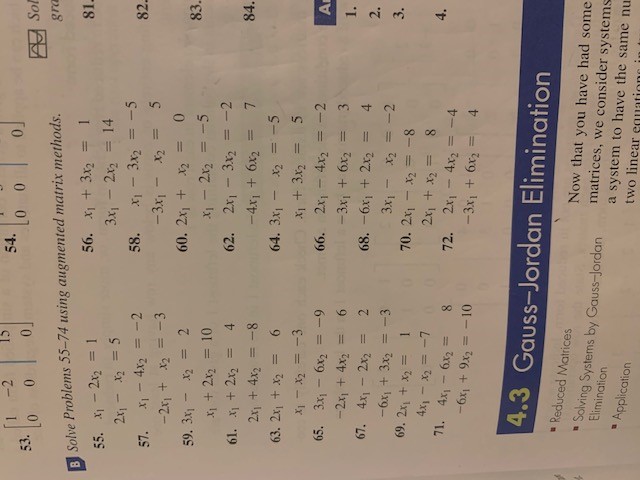 53. [1 -2 | 15
0 0 | 0]
54. [1
0 0 | 0]
B Solve Problems 55–74 using augmented matrix methods.
55. x₁ − 2x₂ = 1
2x₁ − x₂ = 5
56. x₁ + 3x₂ = 1
3x₁ − 2x₂ = 14
57. x₁ − 4x₂ = −2
−2x₁ + x₂ = −3
58. x₁ − 3x₂ = −5
−3x₁ − x₂ = 5
59. 3x₁ − x₂ = 2
x₁ + 2x₂ = 10
60. 2x₁ + x₂ = 0
x₁ − 2x₂ = −5
61. x₁ + 2x₂ = 4
2x₁ + 4x₂ = −8
62. 2x₁ − 3x₂ = −2
−4x₁ + 6x₂ = 7
63. 2x₁ + x₂ = 6
x₁ − x₂ = −3
64. 3x₁ − x₂ = −5
x₁ + 3x₂ = 5
65. 3x₁ − 6x₂ = −9
−2x₁ + 4x₂ = 6
66. 2x₁ − 4x₂ = −2
−3x₁ + 6x₂ = 3
67. 4x₁ − 2x₂ = 2
−6x₁ + 3x₂ = −3
68. −6x₁ + 2x₂ = 4
3x₁ − x₂ = −2
69. 2x₁ + x₂ = 1
4x₁ − x₂ = −7
70. 2x₁ − x₂ = −8
2x₁ + x₂ = 8
71. 4x₁ − 6x₂ = 8
−6x₁ + 9x₂ = −10
72. 2x₁ − 4x₂ = −4
−3x₁ + 6x₂ = 4
4.3 Gauss–Jordan Elimination
▪ Reduced Matrices
▪ Solving Systems by Gauss–Jordan
Elimination
▪ Application
Now that you have had some
matrices, we consider systems
a system to have the same nu
two linear equations
Sol
gra
81.
82.
83.
84.
1.
2.
3.
4.